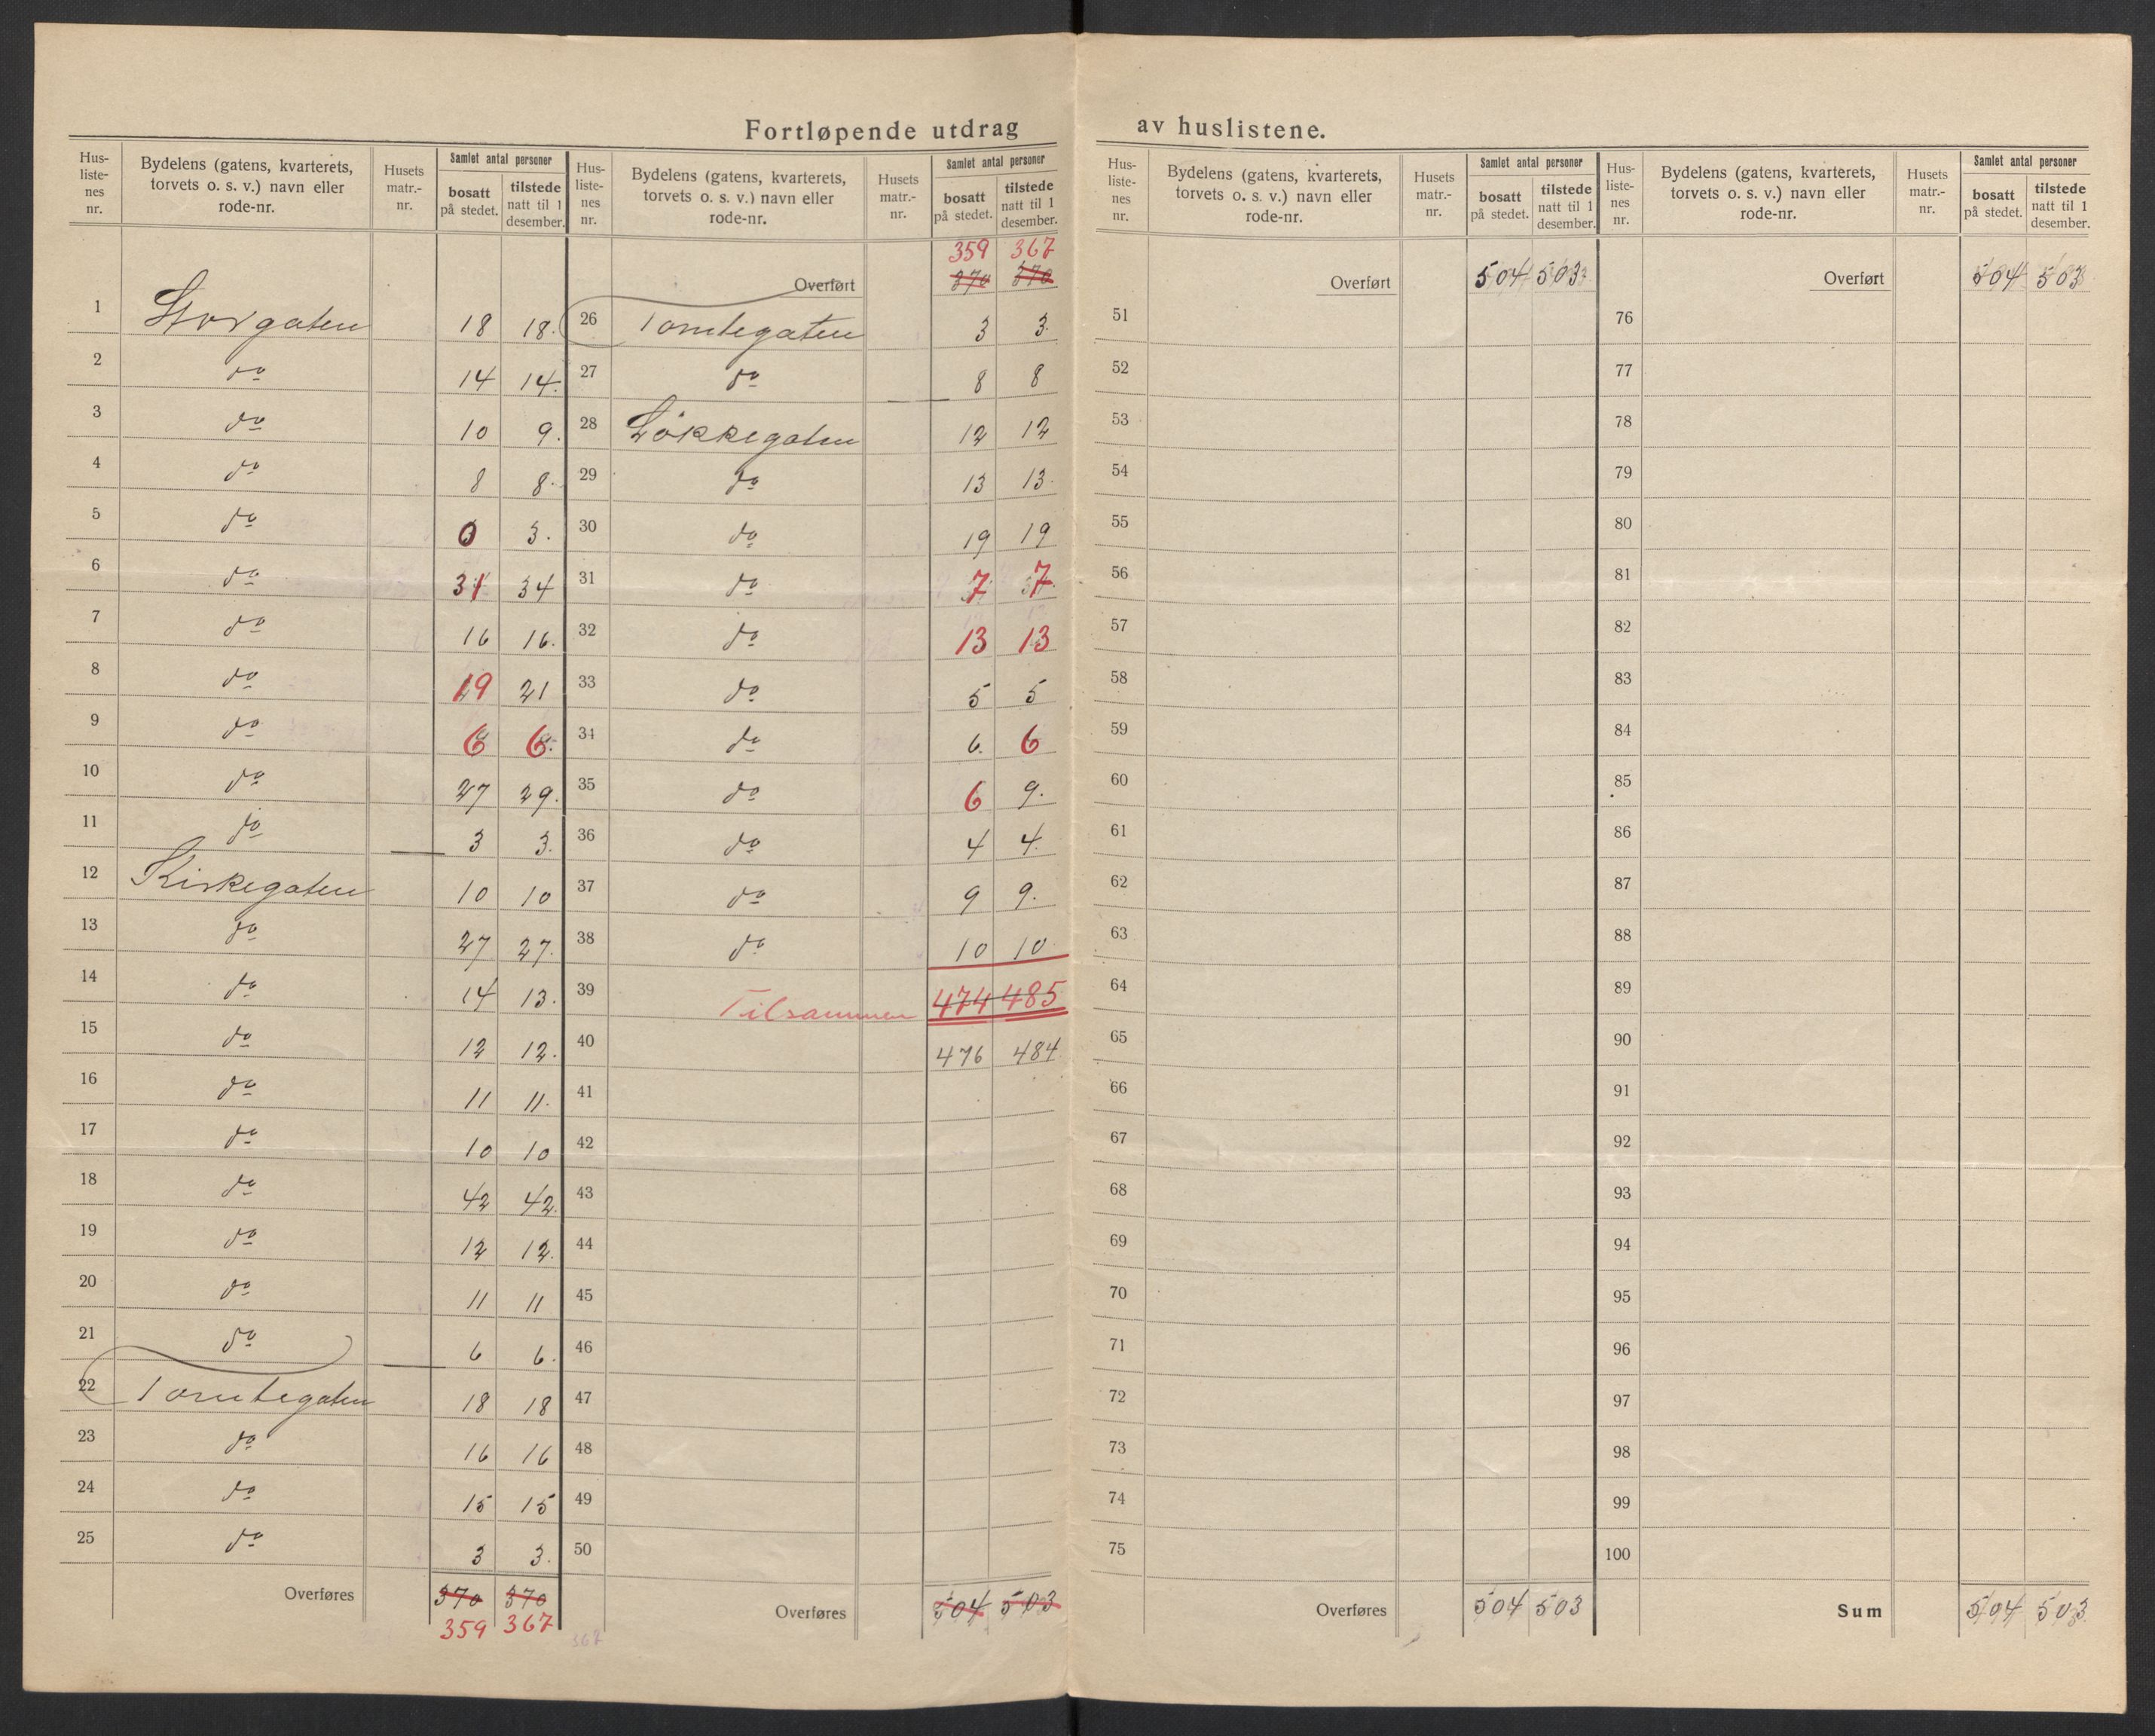 Fortløpende utdrag av huslistene.
Hus-listenes nr. | Bydelens (gatens, kvarterets, torvets o. s. v.) navn eller rode-nr. | Husets matr.-nr. | Samlet antal personer bosatt på stedet. | tilstede natt til 1 desember.
1 Storgaten 18 18.
2 do 14 14.
3 do 10 9.
4 do 8 8.
5 do 0 3.
6 do 31 34
7 do 16 16.
8 do 19 21
9 do 6 6.
10 do 27 29.
11 do 3 3.
12 Kirkegaten 10 10
13 do 27 27.
14 do 14 13.
15 do 12 12.
16 do 11 11.
17 do 10 10
18 do 42 42.
19 do 12 12.
20 do 11 11
21 do 6 6.
22 Tomtegaten 18 18
23 do 16 16
24 do 15 15
25 do 3 3.
Overføres 370 370
359 367
Hus-listenes nr. | Bydelens (gatens, kvarterets, torvets o. s. v.) navn eller rode-nr. | Husets matr.-nr. | Samlet antal personer bosatt på stedet. | tilstede natt til 1 desember.
359 367
Overført 370 370
26 Tomtegaten 3 3.
27 do 8 8
28 Løkkegaten 12 12
29 do 13 13.
30 do 19 19
31 do 7 7.
32 do 13 13
33 do 5 5
34 do 6. 6
35 do 6 9.
36 do 4 4.
37 do 9 9.
38 do 10 10
39 Tilsammen 474 485
40 476 484
41
42
43
44
45
46
47
48
49
50
Overføres 504 503
367
Hus-listenes nr. | Bydelens (gatens, kvarterets, torvets o. s. v.) navn eller rode-nr. | Husets matr.-nr. | Samlet antal personer bosatt på stedet. | tilstede natt til 1 desember.
Overført 504 503
51
52
53
54
55
56
57
58
59
60
61
62
63
64
65
66
67
68
69
70
71
72
73
74
75
Overføres 504 503
Hus-listenes nr. | Bydelens (gatens, kvarterets, torvets o. s. v.) navn eller rode-nr. | Husets matr.-nr. | Samlet antal personer bosatt på stedet. | tilstede natt til 1 desember.
Overført 504 503
76
77
78
79
80
81
82
83
84
85
86
87
88
89
90
91
92
93
94
95
96
97
98
99
100
Sum 504 503